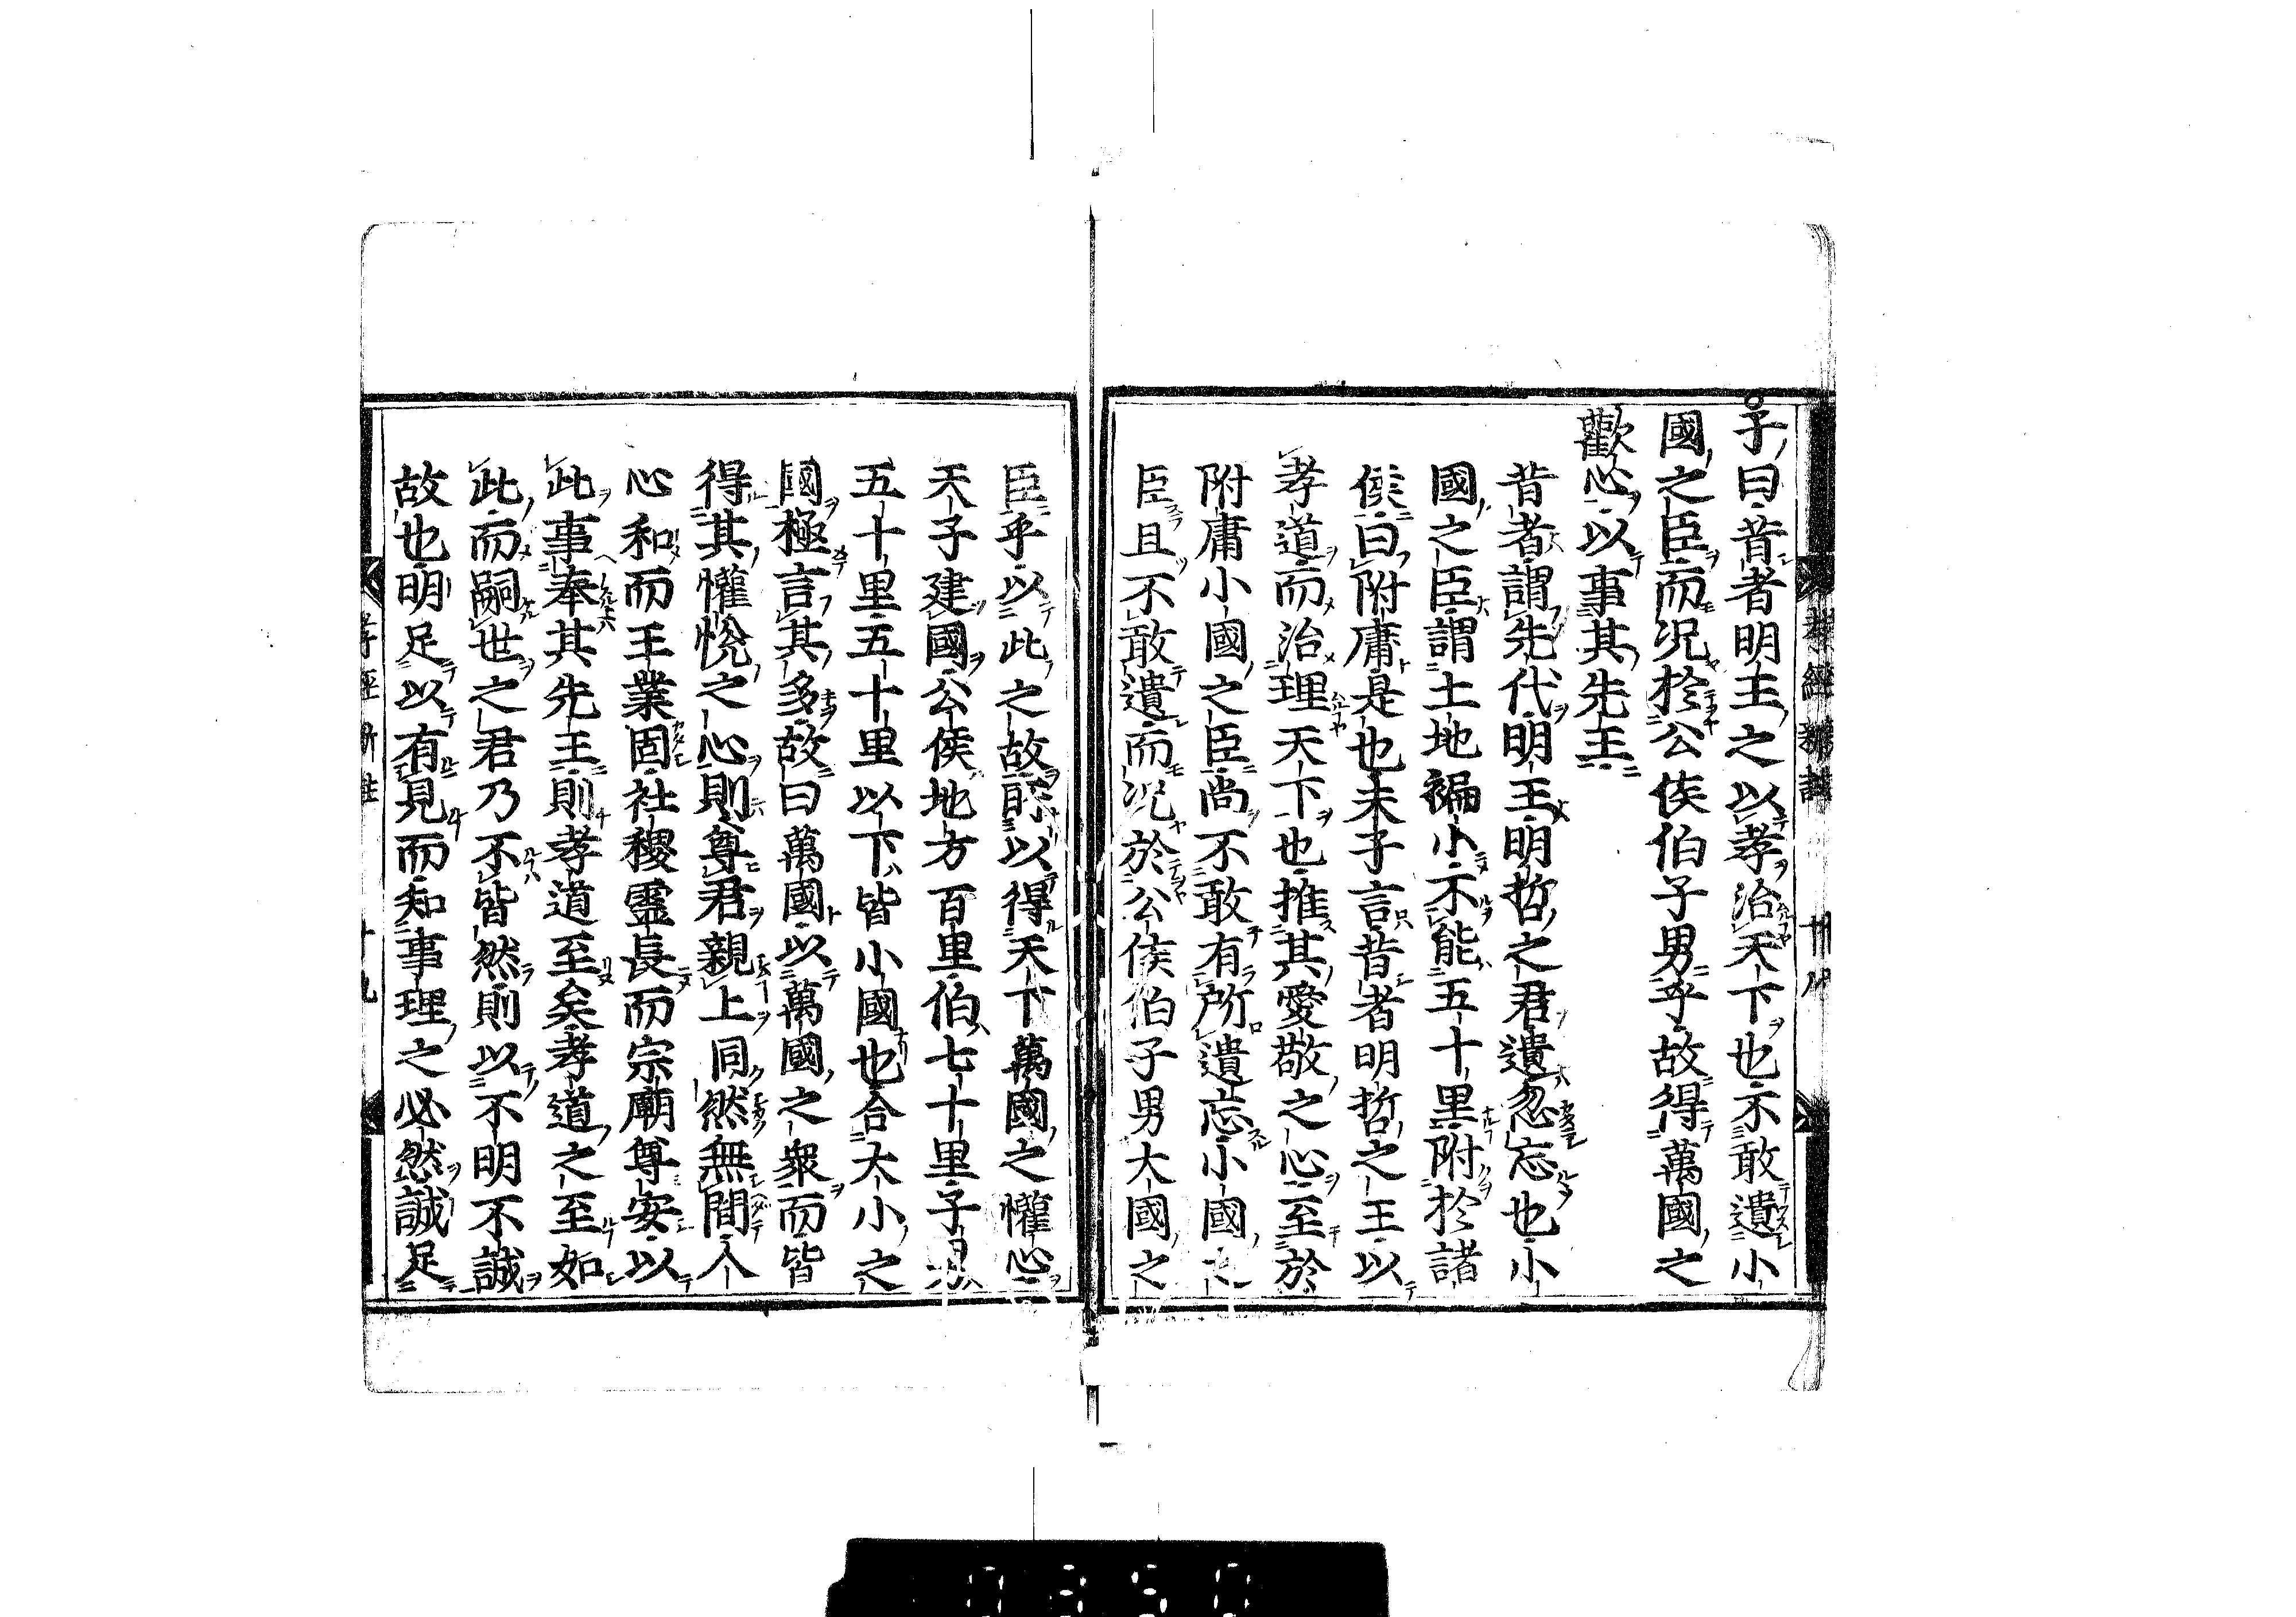 子曰昔者明王之以孝治天下也不敢遺小
國之臣而况於公侯伯子男乎故得萬國之
歡心以事其先王
昔者謂先代明王明哲之君遺忽忘也小
國之臣謂土地褊小不能五十里附於諸
侯曰附庸是也夫子言昔者明哲之王以
孝道而治理天下也推其愛敬之心至於
附庸小國之臣尚不敢有所遺忘小國之
臣且不敢遺而况於公侯伯子男大國之
臣乎以此之故所以得天下萬國之懽心
天子建國公侯地方百里伯七十里子男
五十里五十里以下皆小國也合大小之
國極言其多故曰萬國以萬國之衆而皆
得其懽悅之心則尊君親上同然無間人
心和而王業固社稷靈長而宗廟尊安以
此事奉其先王則孝道至矣孝道之至如
此而嗣世之君乃不皆然則以不明不誠
故也明足以有見而知事理之必然誠足